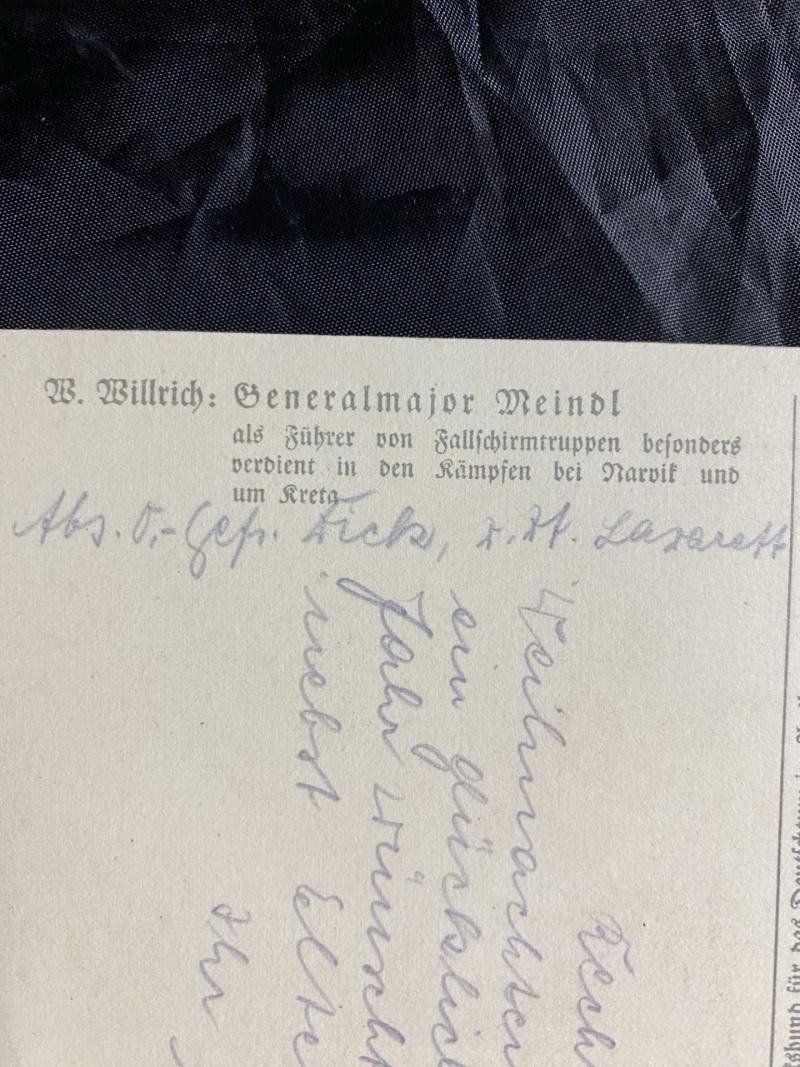 W. Willrich: Generalmajor Meindl
als Führer von Fallschirmtruppen besonders
verdient in den Kämpfen bei Narvik und
um Kreta
Abs. O.-Gefr. Dick, z. Zt. Lazarett
Rech
Weihnachten
ein glücklich
Jahr wünscht
nebst Elte
Ihr
für das Deutschtum im